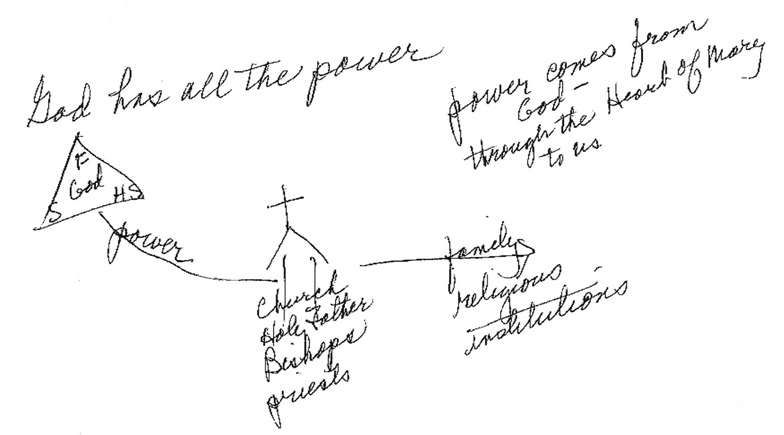 God has all the power
power comes from
God –
through the Heart of Mary
to us
F
God
S HS
power
Church
Holy Father
Bishops
priests
family
religious
institutions